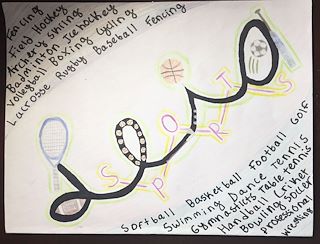 Fencing
Field Hockey
Archery skiing
Badminton Ice Hockey
Volleyball Boxing Cycling
Lacrosse Rugby Baseball Fencing
SPORTS
Softball Basketball Football Golf
Swimming Dance Tennis
Gymnastics Table tennis
Handball Criket
Bowling Soccer
prosessional
wrestling